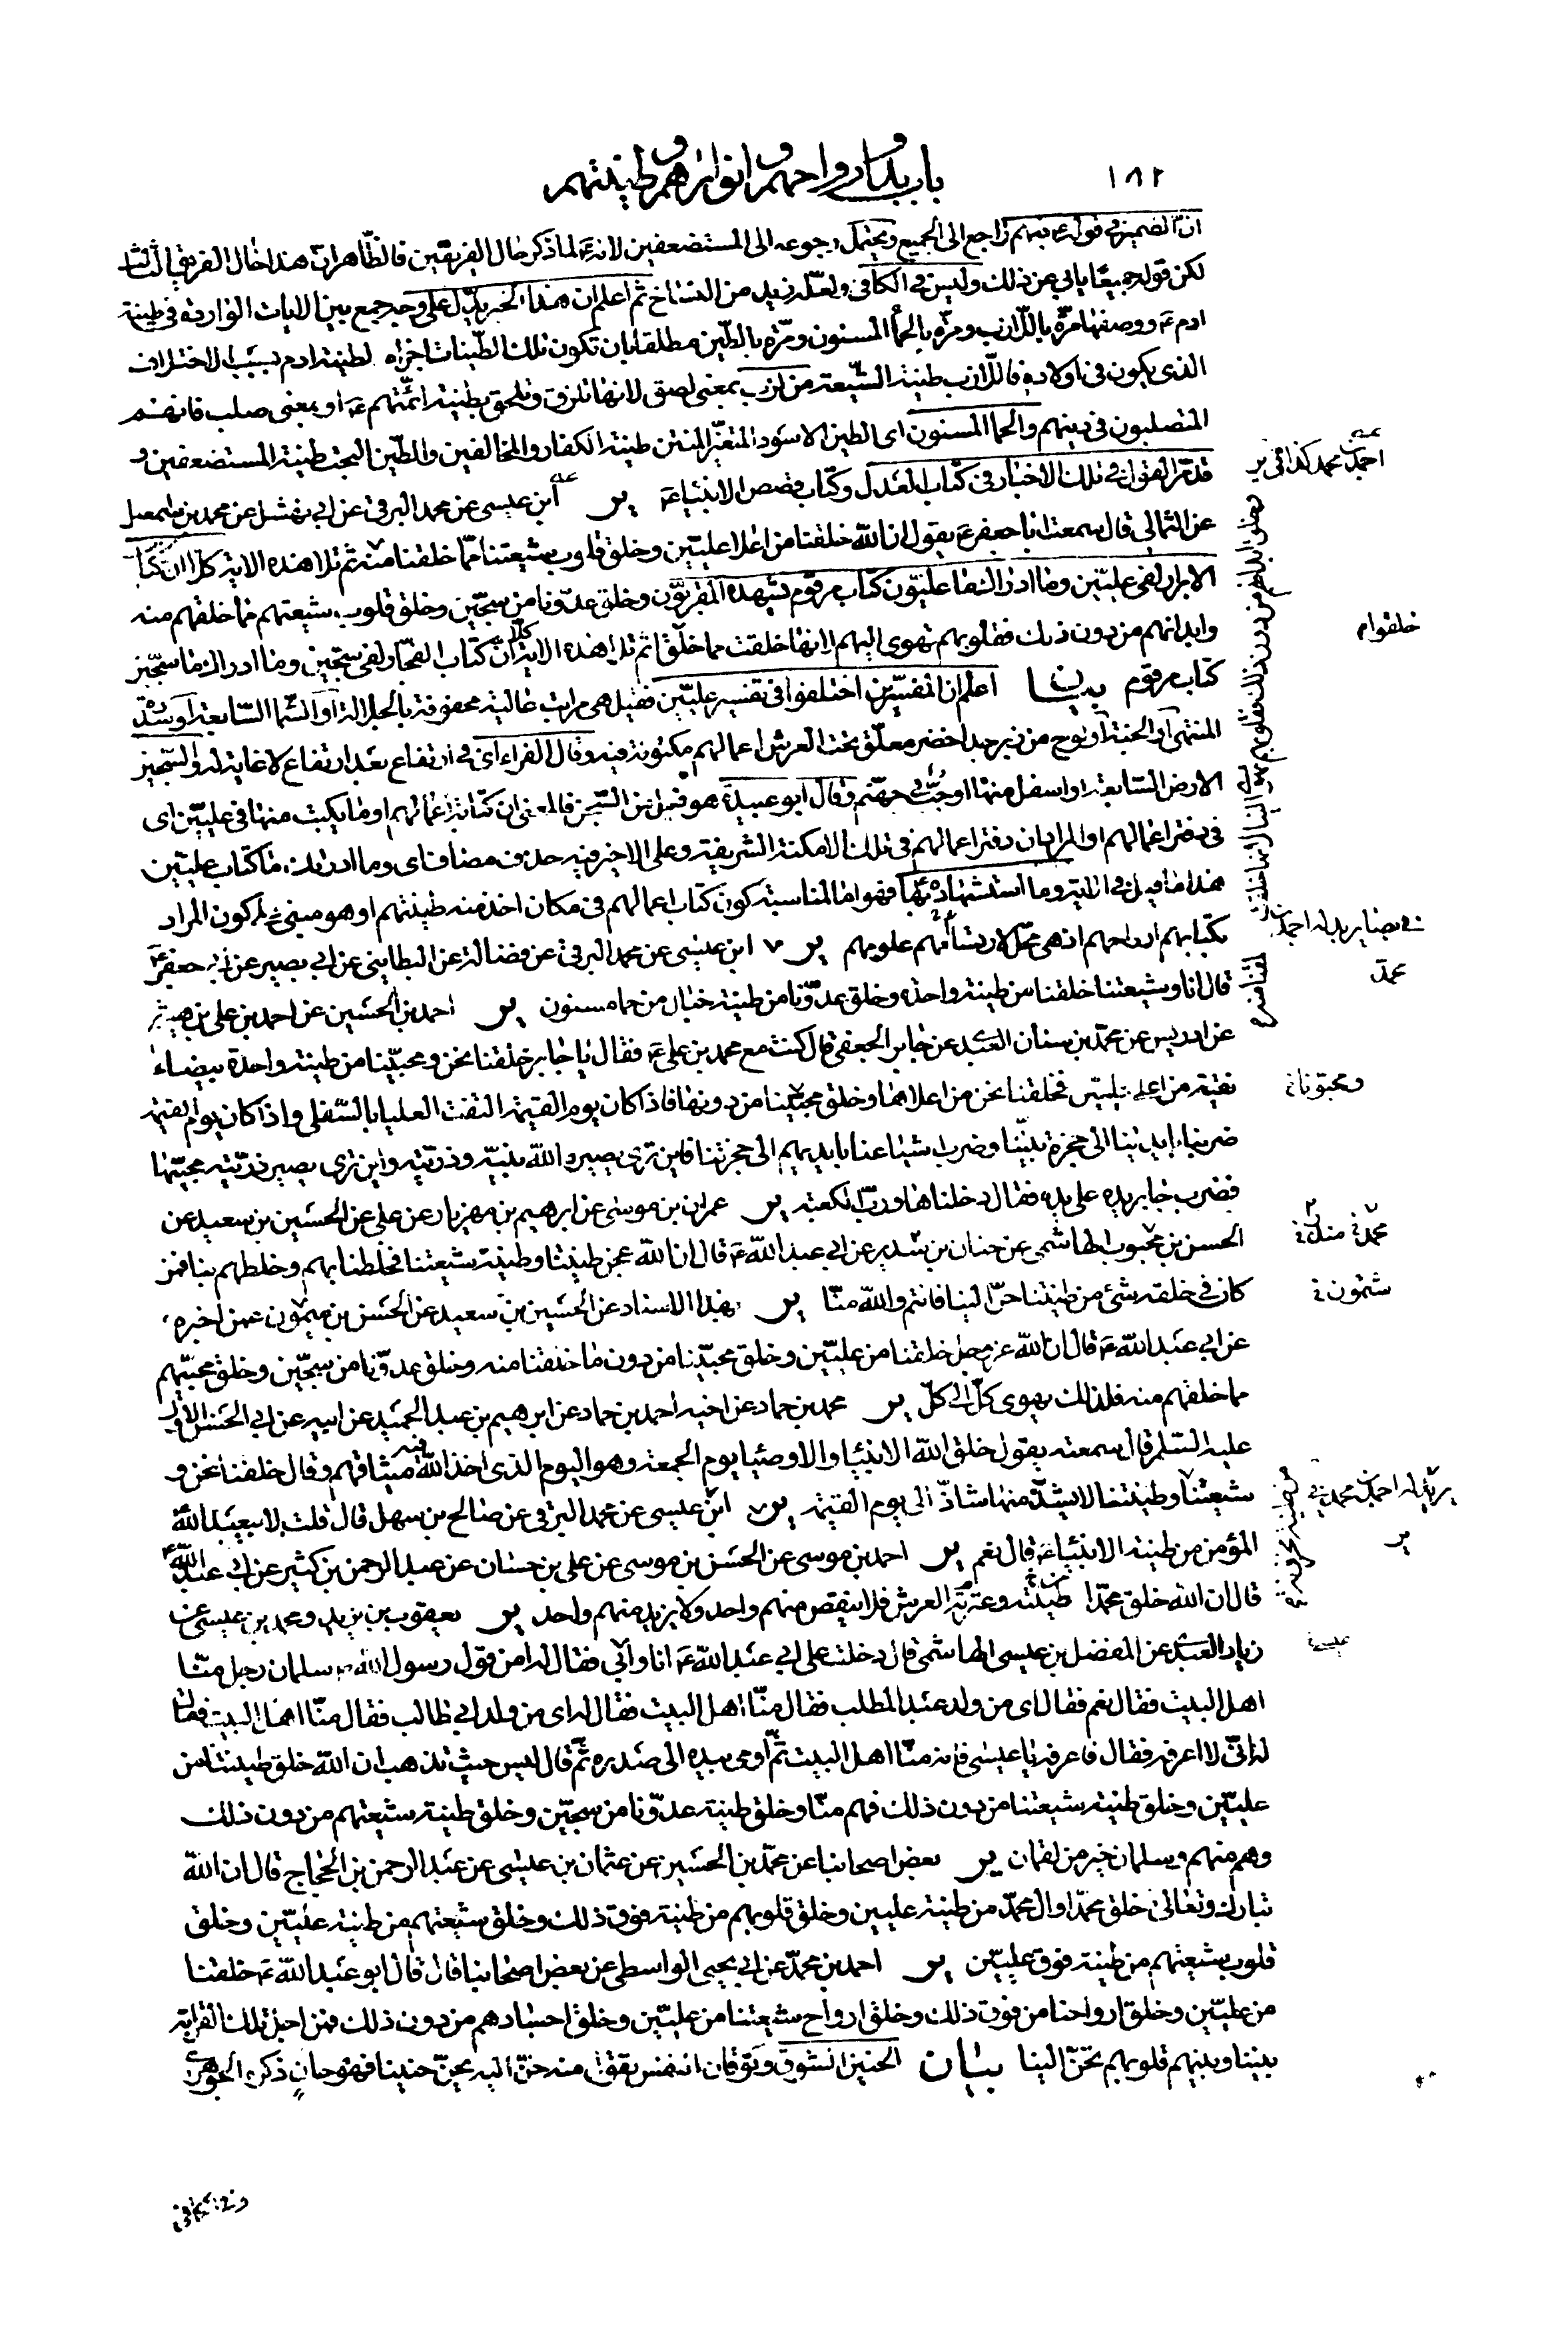 ١٨٢
باب بدو ارواحهم و انوارهم و طينتهم
انّ الضمير في قوله ع فيهم راجع الى الجميع ويحتمل رجوعه الى المستضعفين لانه ع لما ذكر حال الفريقين فالظّاهر انّ هذا حال الفريق الثالث
لكن قوله جميعًا يابى عن ذلك وليس في الكافي ولعلّه زيد من النساخ ثم اعلم ان هذا الخبر يدلّ على وجه جمع بين الايات الواردة في طينة
ادم ع ووصفها مرّة باللّازب ومرّة بالحمأ المسنون ومرّة بالطّين مطلقا بان تكون تلك الطّينات اجزاء لطينة ادم بسبب الاختلاف
الذي يكون في اولاده فاللّازب طينة الشّيعة من لزب بمعنى لصق لانها تلزق وتلحق بطينة ائمّتهم ع او بمعنى صلب فانهم
المتصلبون في دينهم والحما المسنون اى الطين الاسود المتغيّر المنتن طينة الكفار والمخالفين والطّين البحت طينة المستضعفين و
قد مرّ القول في تلك الاخبار في كتاب العدل وكتاب قصص الانبياء ع ير ابن عيسى عن محمد البرقي عن ابي نهشل عن محمد بن اسمعيل
عن الثمالي قال سمعت ابا جعفر ع يقول ان الله خلقنا من اعلا عليّين وخلق قلوب شيعتنا ممّا خلقنا منه ثم تلا هذه الاية كلا ان كتاب
الابرار لفي عليّين وما ادراك ما علّيون كتاب مرقوم يشهده المقربّون وخلق عدوّنا من سجّين وخلق قلوب شيعتهم مما خلقهم منه
وابدانهم من دون ذلك فقلوبهم تهوى اليهم لانها خلقت مما خلقوا ثم تلا هذه الاية كلا ان كتاب الفجّار لفي سجّين وما ادراك ما سجّين
كتاب مرقوم بيان اعلم ان المفسّرين اختلفوا في تفسير عليّين فقيل هي مراتب عالية محفوفة بالجلالة او السّماء السّابعة او سدرة
المنتهى او الجنة او لوح من زبرجد اخضر معلّق تحت العرش اعمالهم مكتوبة فيه وقال الفراء اى في ارتفاع بعد ارتفاع لا غاية له والسّجين
الارض السّابعة او اسفل منها او جبّ في جهنّم وقال ابو عبيدة هو فعيل من السّجن فالمعنى ان كتابة اعمالهم او ما يكتب منها في عليّين اى
في دفتر اعمالهم او المراد ان دفتر اعمالهم في تلك الامكنة الشريفة وعلى الاخير فيه حذف مضاف اى وما ادريك ما كتاب عليّين
هذا ما قيل في الاية وما استشهاده بها فهو اما لمناسبة كون كتاب اعمالهم في مكان اخذ منه طينتهم او هو مبني على كون المراد
بكتابهم ارواحهم اذ هي محل لارتسام علومهم ير ابن عيسى عن محمد البرقي عن فضالة عن البطايني عن ابي بصير عن ابي جعفر ع
قال انا وشيعتنا خلقنا من طينة واحدة وخلق عدوّنا من طينة خبال من حماء مسنون ير احمد بن الحسين عن احمد بن على بن هيثم
عن ادريس عن محمّد بن سنان العبدي عن جابر الجعفي قال كنت مع محمد بن علي ع فقال يا جابر خلقنا نحن ومحبّينا من طينة واحدة بيضاء
نقية من اعلى عليين فخلقنا نحن من اعلاها وخلق محبّينا من دونها فاذا كان يوم القيمة التفت العليا بالسّفلى واذا كان يوم القيمة
ضربنا بايدينا الى حجزة نبيّنا وضرب اشياعنا بايديهم الى حجزتنا فاين ترى يصير الله نبيّه وذريّته واين ترى يصير ذريّته محبيّها
فضرب جابر يده على يده فقال دخلناها وربّ الكعبة ير عمران بن موسى عن ابرهيم بن مهزيار عن على عن الحسين بن سعيد عن
الحسن بن محبوب الهاشمي عن حنان بن سدير عن ابي عبد الله ع قال ان الله عجن طينتنا وطينة شيعتنا فخلطنا بهم وخلطهم بنا فمن
كان في خلقه شئ من طينتنا حنّ الينا فانتم والله منّا ير بهذا الاسناد عن الحسين بن سعيد عن الحسن بن ميمون عمن اخبره
عن ابي عبد الله ع قال ان الله عز وجل خلقنا من عليّين وخلق محبّينا من دون ما خلقنا منه وخلق عدوّنا من سجّين وخلق محبّيهم
مما خلقهم منه فلذلك يهوى كلّ الى كلّ ير محمد بن حماد عن اخيه احمد بن حماد عن ابرهيم بن عبد الحميد عن ابيه عن ابي الحسن الاول
عليه السّلم قال سمعته يقول خلق الله الانبياء والاوصياء يوم الجمعة وهو اليوم الذى اخذ الله فيه ميثاقهم وقال خلقنا نحن و
شيعتنا من طينة لا يشذّ منها شاذّ الى يوم القيمة ير ابن عيسى عن محمد البرقي عن صالح بن سهل قال قلت لابي عبد الله
المؤمن من طينة الانبياء ع قال نعم ير احمد بن موسى عن الحسن بن موسى عن على بن حسان عن عبد الرحمن بن كثير عن ابي عبد الله ع
قال ان الله خلق محمّدا طينته وعترته العرش فلا ينقص منهم واحد ولا يزيد منهم واحد ير يعقوب بن يزيد ومحمد بن عيسى عن
زياد العبدي عن المفضل بن عيسى الهاشمي قال دخلت على ابي عبد الله ع انا وابي فقال له امن قول رسول الله ص سلمان رجل منّا
اهل البيت فقال نعم فقال اى من ولد عبد المطلب فقال منّا اهل البيت فقال له اى من ولد ابي طالب فقال منّا اهل البيت فقال
له انّي لا اعرفه فقال فاعرفه يا عيسى فانه منّا اهل البيت ثمّ اومى بيده الى صدره ثمّ قال ليس حيث تذهب ان الله خلق طينتنا من
عليّين وخلق طينة شيعتنا من دون ذلك فهم منّا وخلق طينة عدوّنا من سجّين وخلق طينة شيعتهم من دون ذلك
وهم منهم وسلمان خير من لقمان ير بعض اصحابنا عن محمّد بن الحسين عن عثمان بن عيسى عن عبد الرحمن بن الحجاج قال ان الله
تبارك وتعالى خلق محمّدا وال محمّد من طينة عليين وخلق قلوبهم من طينة فوق ذلك وخلق شيعتهم من طينة عليّين وخلق
قلوب شيعتهم من طينة فوق عليّين ير احمد بن محمّد عن ابي يحيى الواسطي عن بعض اصحابنا قال قال ابو عبد الله ع خلقنا
من عليّين وخلق ارواحنا من فوق ذلك وخلق ارواح شيعتنا من عليّين وخلق اجسادهم من دون ذلك فمن اجل تلك القرابة
بيننا وبينهم قلوبهم تحنّ الينا بيان الحنين الشوق وتوقان النفس يقول منه حنّ اليه يحنّ حنينا فهو حانٍ ذكره الجوهري
احمد بن محمد كذا في ير
خلقوا م
محمّد
ومحبّونا